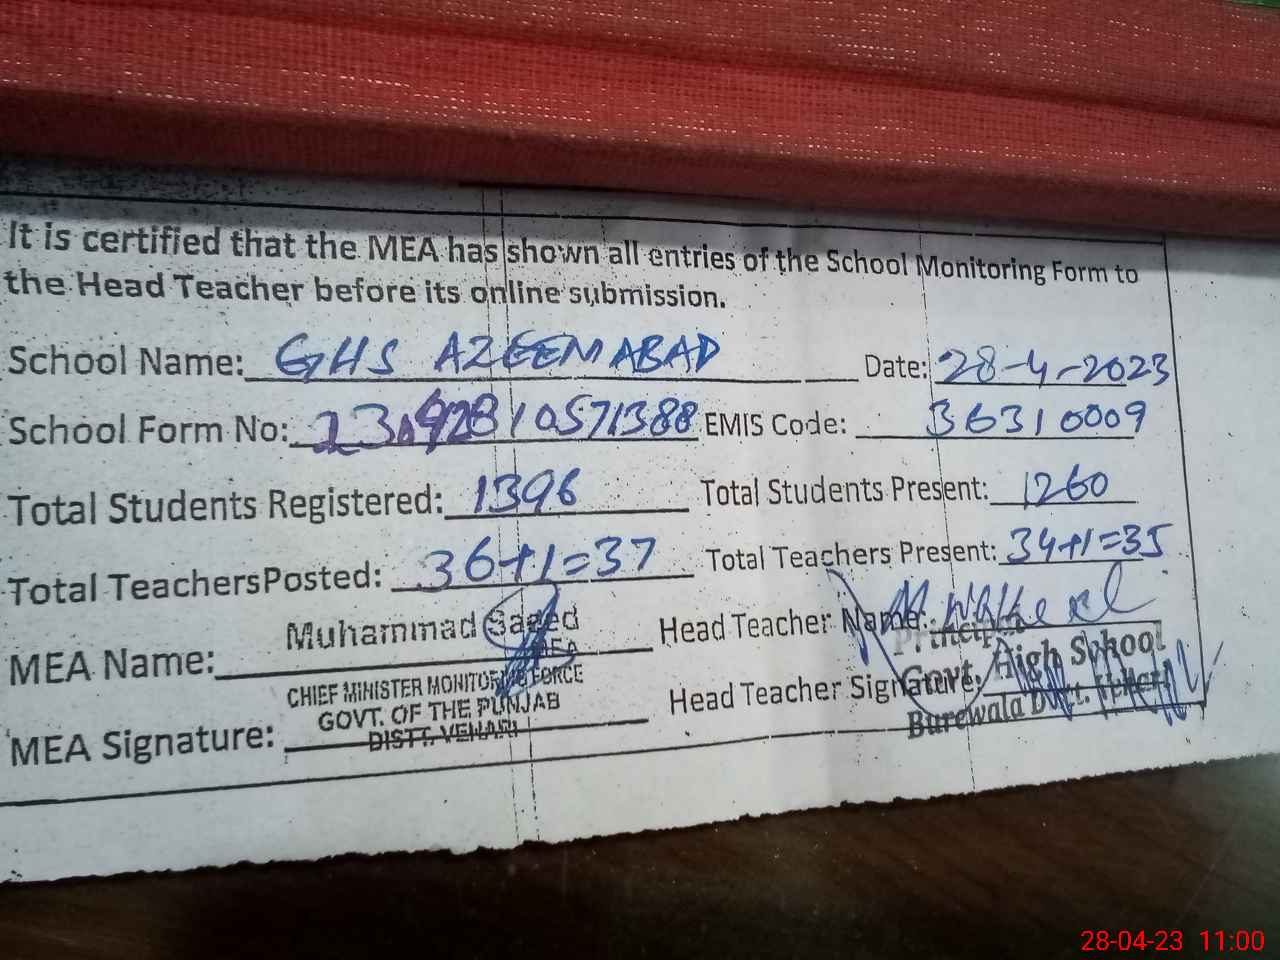 It is certified that the MEA has shown all entries of the School Monitoring Form to
the Head Teacher before its online submission.
School Name: GHS AZEEMABAD Date: 28-4-2023
School Form No: EMIS Code: 36310009
Total Students Registered: 1396 Total Students Present: 1260
Total TeachersPosted: 36+1=37 Total Teachers Present: 34+1=35
MEA Name: Muhammad Saeed Head Teacher Name:
MEA
Principal
CHIEF MINISTER MONITORING FORCE
GOVT. OF THE PUNJAB
DISTT. VEHARI
MEA Signature: Head Teacher Signature:
Govt. High School
Burewala Distt.
28-04-23 11:00